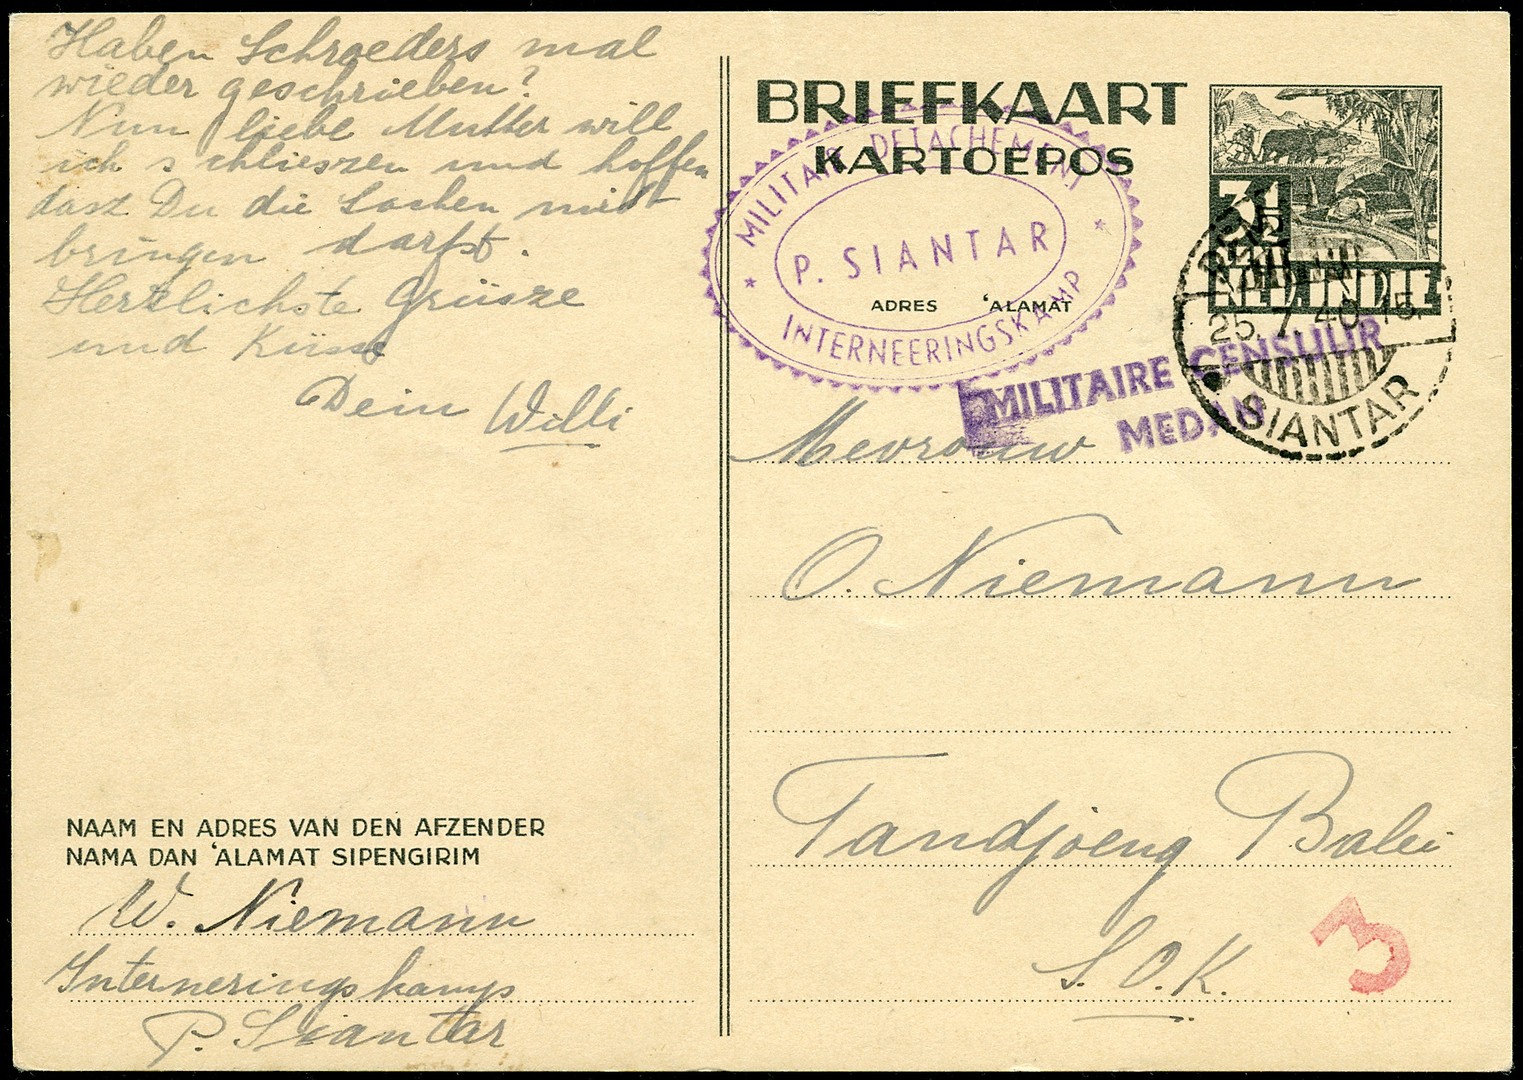 Haben Schroeders mal
wieder geschrieben?
Nun liebe Mutter will
ich schlieszen und hoffen
dasz Du die Sachen mit-
bringen darfst.
Herzlichste Grüsze
und Küsse
Dein Willi
NAAM EN ADRES VAN DEN AFZENDER
NAMA DAN 'ALAMAT SIPENGIRIM
W. Niemann
Interneringskamp
P. Siantar
BRIEFKAART
KARTOEPOS
3½
CENT
NED. INDIE
MILITAIR DETACHEMENT
P. SIANTAR
INTERNEERINGSKAMP
ADRES 'ALAMAT
25.7.40.15
SIANTAR
MILITAIRE CENSUUR
MEDAN
Mevrouw
O. Niemann
Tandjoeng Balei
S.O.K.
3